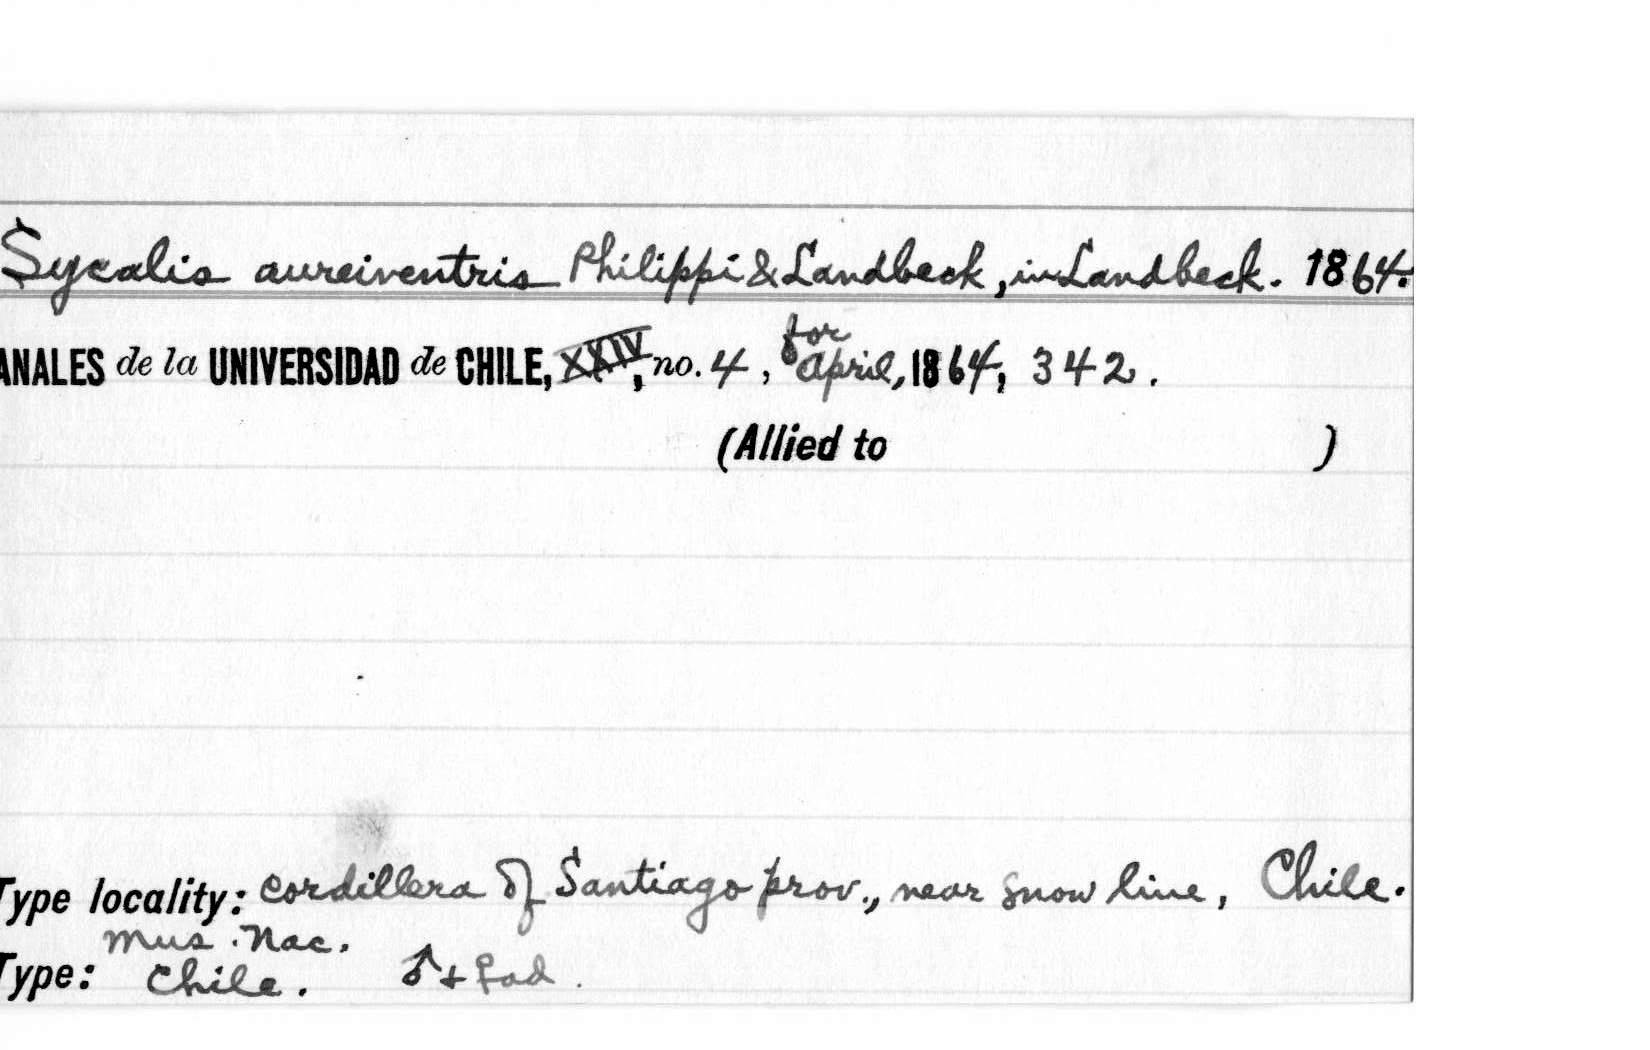 Sycalis aureiventris Philippi & Landbeck, in Landbeck. 1864.
ANALES de la UNIVERSIDAD de CHILE, XXIV, no. 4, for April, 1864, 342.
(Allied to )
Type locality: cordillera of Santiago prov., near snow line, Chile.
Mus. Nac.
Type: Chile. ♂ + ♀ ad.